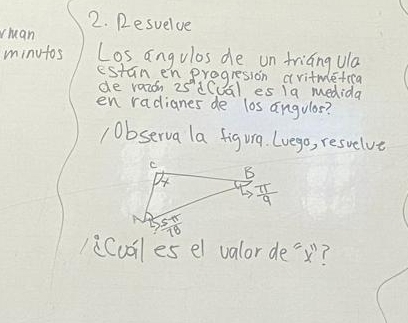 rman
minutos
2. Resuelve
Los ángulos de un triángulo
están en progresión aritmética
de razón 25° ¿Cuál es la medida
en radianes de los ángulos?
Observa la figura. Luego, resuelve
C
x
B
π/9
A
5π/18
¿Cuál es el valor de "x"?